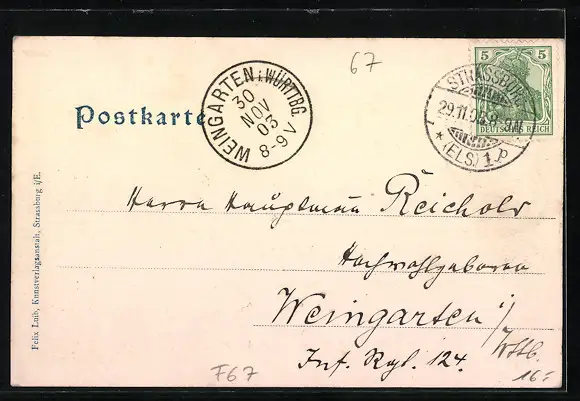 67
5 5
DEUTSCHES REICH
STRASSBURG
29.11.03. 8-9N
* (ELS) 1 p
WEINGARTEN i. WÜRTTBG.
30
NOV
03
8-9 V
Postkarte
Herrn Hauptmann Reichold
Hochwohlgeboren
Weingarten i/
Wttb.
Inf. Rgt. 124.
16.-
F67
Felix Luib, Kunstverlagsanstalt, Strassburg i/E.